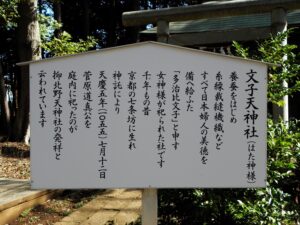 文子天神社(はた神様)
養蚕をはじめ
糸線裁縫機織など
すべて日本婦人の美徳を
備へ給ふた
「多治比文子」と申す
女神様が祀られた社です
千年もの昔
京都の七条坊に生れ
神託により
天慶五年(一〇五五)七月十二日
菅原道真公を
庭内に祀ったのが
抑北野天神社の発祥と
云われています